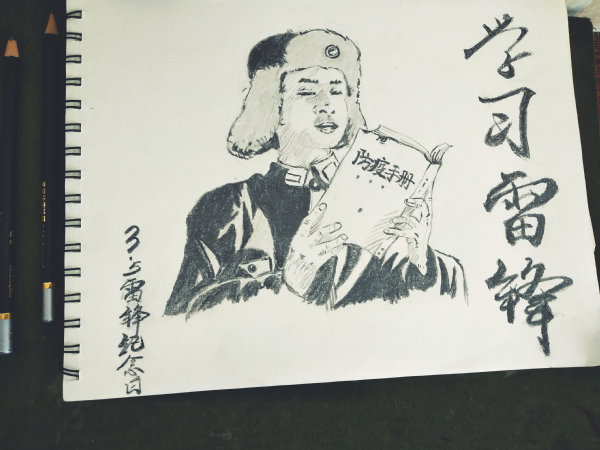 学习雷锋
防疫手册
3.5雷锋纪念日